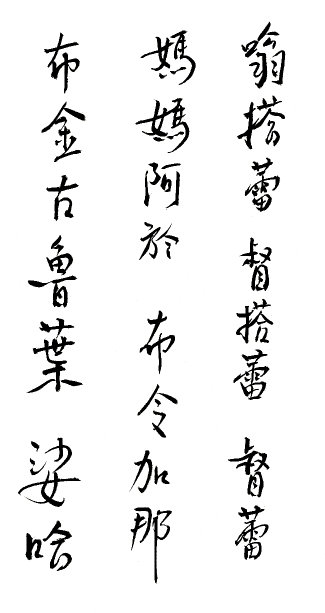 嗡搭蕾 督搭蕾 督蕾
媽媽阿於 布令加那
布金古魯葉 娑哈